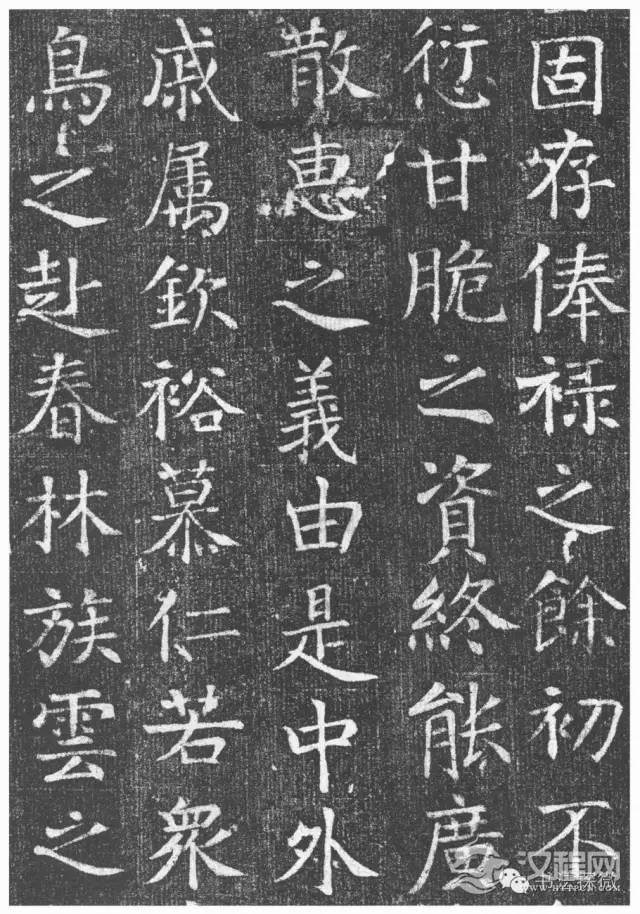 固存俸禄之餘初不
愆甘脆之資終能廣
散恵之義由是中外
戚属欽裕慕仁若衆
鳥之赴春林族雲之
汉程网